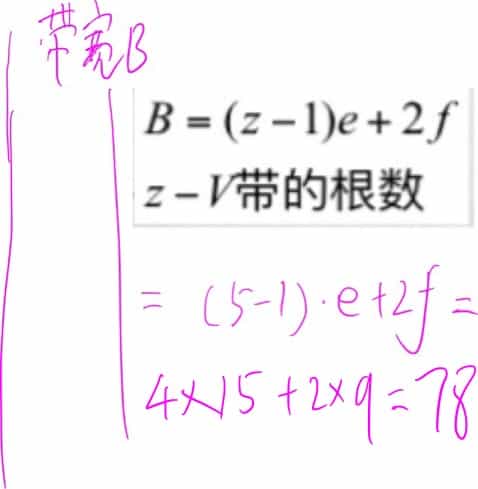 带宽B
B = (z − 1)e + 2f
z − V带的根数
= (5-1)·e+2f =
4×15+2×9=78